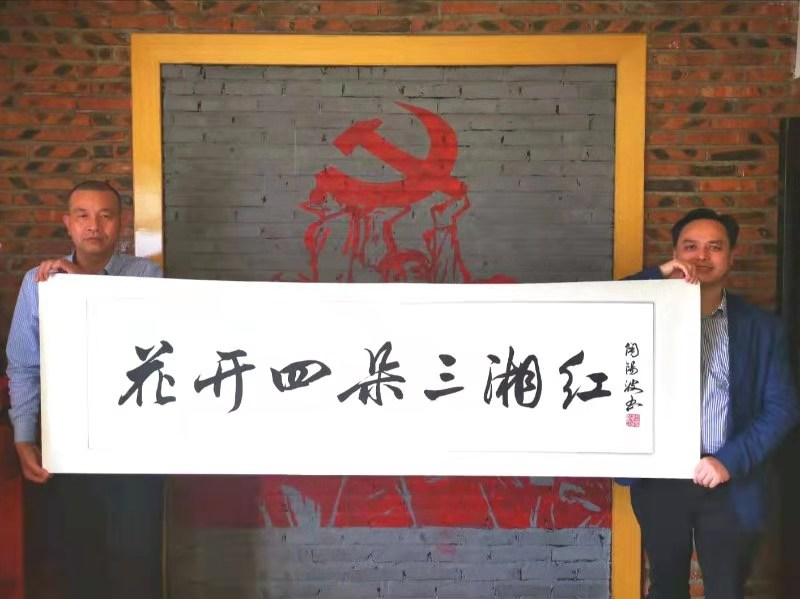 花开四朵三湘红
陶阳波书